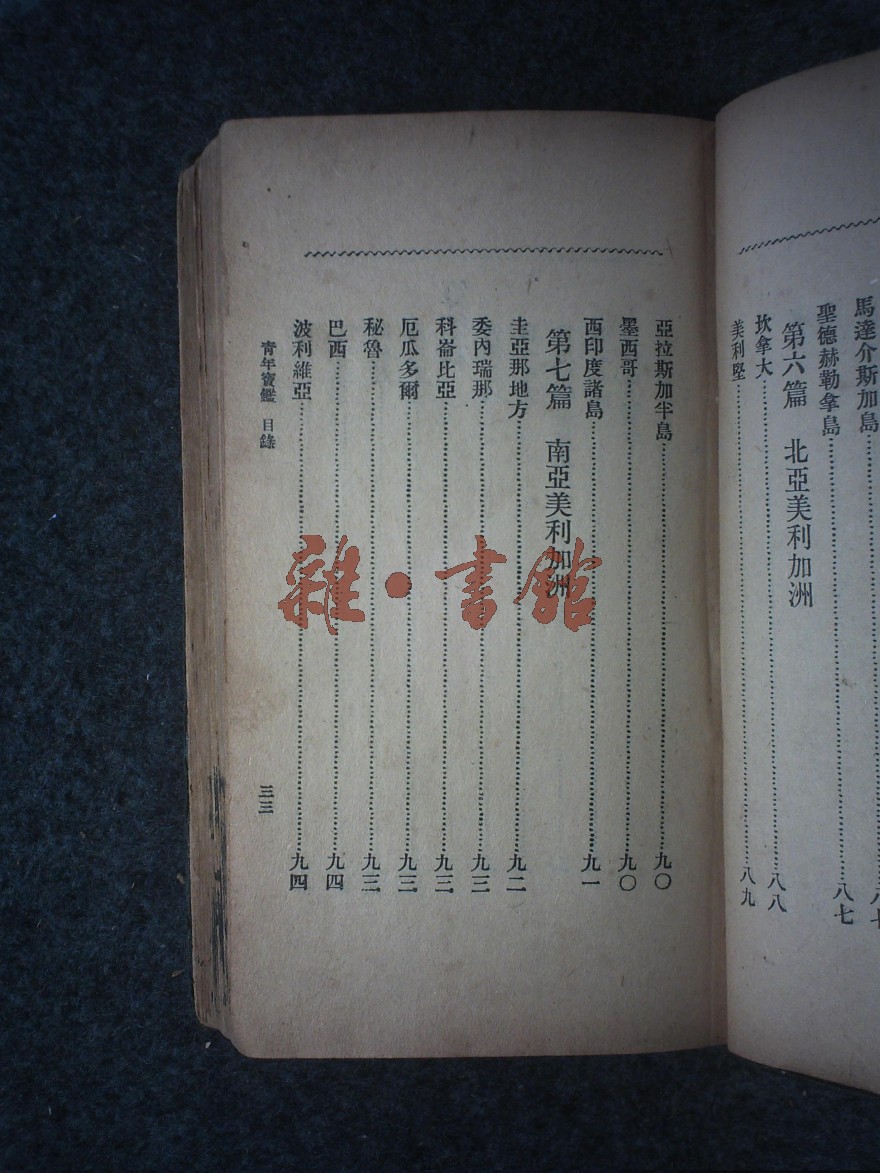 馬達介斯加島
聖德赫勒拿島……八七
第六篇 北亞美利加洲
坎拿大……八八
美利堅……八九
亞拉斯加半島……九〇
墨西哥……九〇
西印度諸島……九一
第七篇 南亞美利加洲
圭亞那地方……九二
委內瑞那……九三
科崙比亞……九三
厄瓜多爾……九三
秘魯……九三
巴西……九四
波利維亞……九四
青年寶鑑 目錄
三三
雜·書館